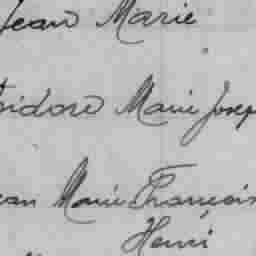 Jean Marie
Isidore Marie Josep
ean Marie François
Henri